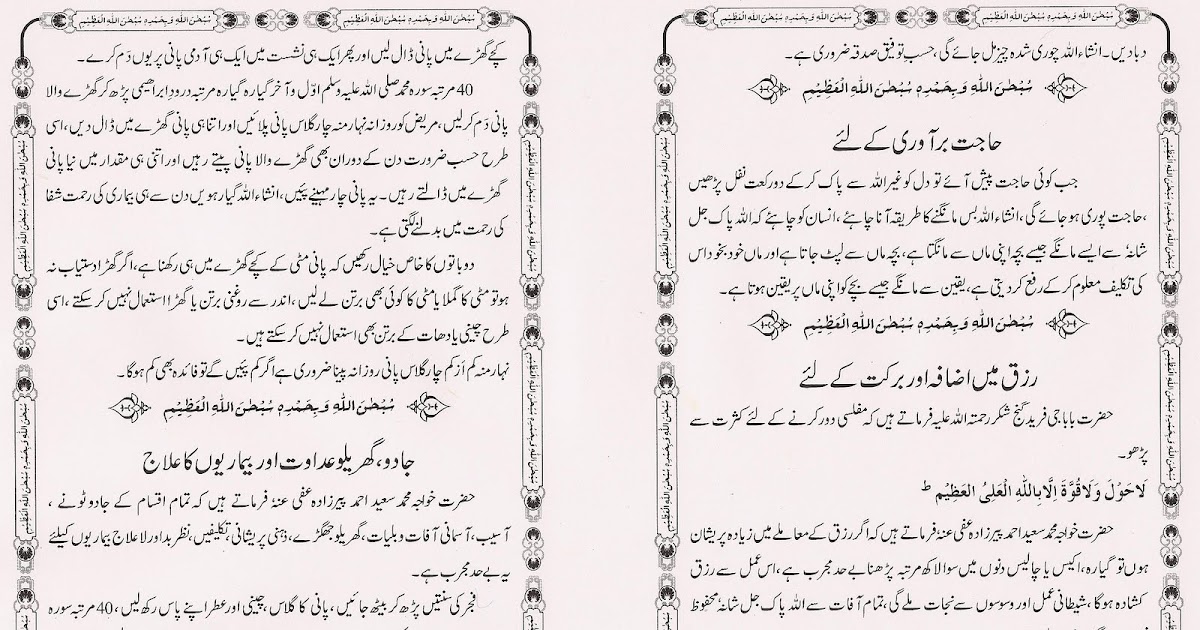 سُبْحٰنَ اللّٰهِ وَبِحَمْدِهٖ سُبْحٰنَ اللّٰهِ الْعَظِيْمِ سُبْحٰنَ اللّٰهِ وَبِحَمْدِهٖ سُبْحٰنَ اللّٰهِ الْعَظِيْمِ
دبا دیں۔ انشاء اللہ چوری شدہ چیز مل جائے گی، حسب توفیق صدقہ ضروری ہے۔
سُبْحٰنَ اللّٰهِ وَبِحَمْدِهٖ سُبْحٰنَ اللّٰهِ الْعَظِيْمِ
حاجت برآوری کے لئے
جب کوئی حاجت پیش آئے تو دل کو غیر اللہ سے پاک کر کے دو رکعت نفل پڑھیں
،حاجت پوری ہو جائے گی، انشاء اللہ بس مانگنے کا طریقہ آنا چاہئے، انسان کو چاہئے کہ اللہ پاک جل
شانہٗ سے ایسے مانگے جیسے بچہ اپنی ماں سے مانگتا ہے، بچہ ماں سے لپٹ جاتا ہے اور ماں خود بخود اس
کی تکلیف معلوم کر کے رفع کر دیتی ہے، یقین سے مانگے جیسے بچے کو اپنی ماں پر یقین ہوتا ہے۔
سُبْحٰنَ اللّٰهِ وَبِحَمْدِهٖ سُبْحٰنَ اللّٰهِ الْعَظِيْمِ
رزق میں اضافہ اور برکت کے لئے
حضرت بابا جی فرید گنج شکر رحمتہ اللہ علیہ فرماتے ہیں کہ مفلسی دور کرنے کے لئے کثرت سے
پڑھو۔
لَاحَوْلَ وَلَاقُوَّةَ اِلَّا بِاللّٰهِ الْعَلِیِّ الْعَظِیْمِ ط
حضرت خواجہ محمد سعید احمد پیرزادہ عفی عنہٗ فرماتے ہیں کہ اگر رزق کے معاملے میں زیادہ پریشان
ہوں تو گیارہ، اکیس یا چالیس دنوں میں سوا لاکھ مرتبہ پڑھنا بے حد مجرب ہے، اس عمل سے رزق
کشادہ ہوگا، شیطانی عمل اور وسوسوں سے نجات ملے گی، تمام آفات سے اللہ پاک جل شانہٗ محفوظ
سُبْحٰنَ اللّٰهِ وَبِحَمْدِهٖ سُبْحٰنَ اللّٰهِ الْعَظِيْمِ سُبْحٰنَ اللّٰهِ وَبِحَمْدِهٖ سُبْحٰنَ اللّٰهِ الْعَظِيْمِ
کچے گھڑے میں پانی ڈال لیں اور پھر ایک ہی نشست میں ایک ہی آدمی پانی پر یوں دَم کرے۔
40 مرتبہ سورہ محمد صلی اللہ علیہ وسلم اوّل و آخر گیارہ گیارہ مرتبہ درودِ ابراھیمی پڑھ کر گھڑے والا
پانی دَم کر لیں، مریض کو روزانہ نہار منہ چار گلاس پانی پلائیں اور اتنا ہی پانی گھڑے میں ڈال دیں، اسی
طرح حسب ضرورت دن کے دوران بھی گھڑے والا پانی پیتے رہیں اور اتنی ہی مقدار میں نیا پانی
گھڑے میں ڈالتے رہیں۔ یہ پانی چار مہینے پئیں، انشاء اللہ گیارہویں دن سے ہی بیماری کی رحمت شفا
کی رحمت میں بدلنے لگتی ہے۔
دو باتوں کا خاص خیال رکھیں کہ پانی مٹی کے کچے گھڑے میں ہی رکھنا ہے، اگر گھڑا دستیاب نہ
ہو تو مٹی کا گملا یا مٹی کا کوئی بھی برتن لے لیں، اندر سے روغنی برتن یا گھڑا استعمال نہیں کر سکتے، اسی
طرح چینی یا دھات کے برتن بھی استعمال نہیں کر سکتے ہیں۔
نہار منہ کم از کم چار گلاس پانی روزانہ پینا ضروری ہے اگر کم پئیں گے تو فائدہ بھی کم ہوگا۔
سُبْحٰنَ اللّٰهِ وَبِحَمْدِهٖ سُبْحٰنَ اللّٰهِ الْعَظِيْمِ
جادو، گھریلو عداوت اور بیماریوں کا علاج
حضرت خواجہ محمد سعید احمد پیرزادہ عفی عنہٗ فرماتے ہیں کہ تمام اقسام کے جادو ٹونے ،
آسیب، آسمانی آفات و بلیات، گھریلو جھگڑے، ذہنی پریشانی، تکلیفیں، نظرِ بد اور لا علاج بیماریوں کیلئے
یہ بے حد مجرب ہے۔
فجر کی سنتیں پڑھ کر بیٹھ جائیں ، پانی کا گلاس، چینی اور عطر اپنے پاس رکھ لیں، 40 مرتبہ سورہ